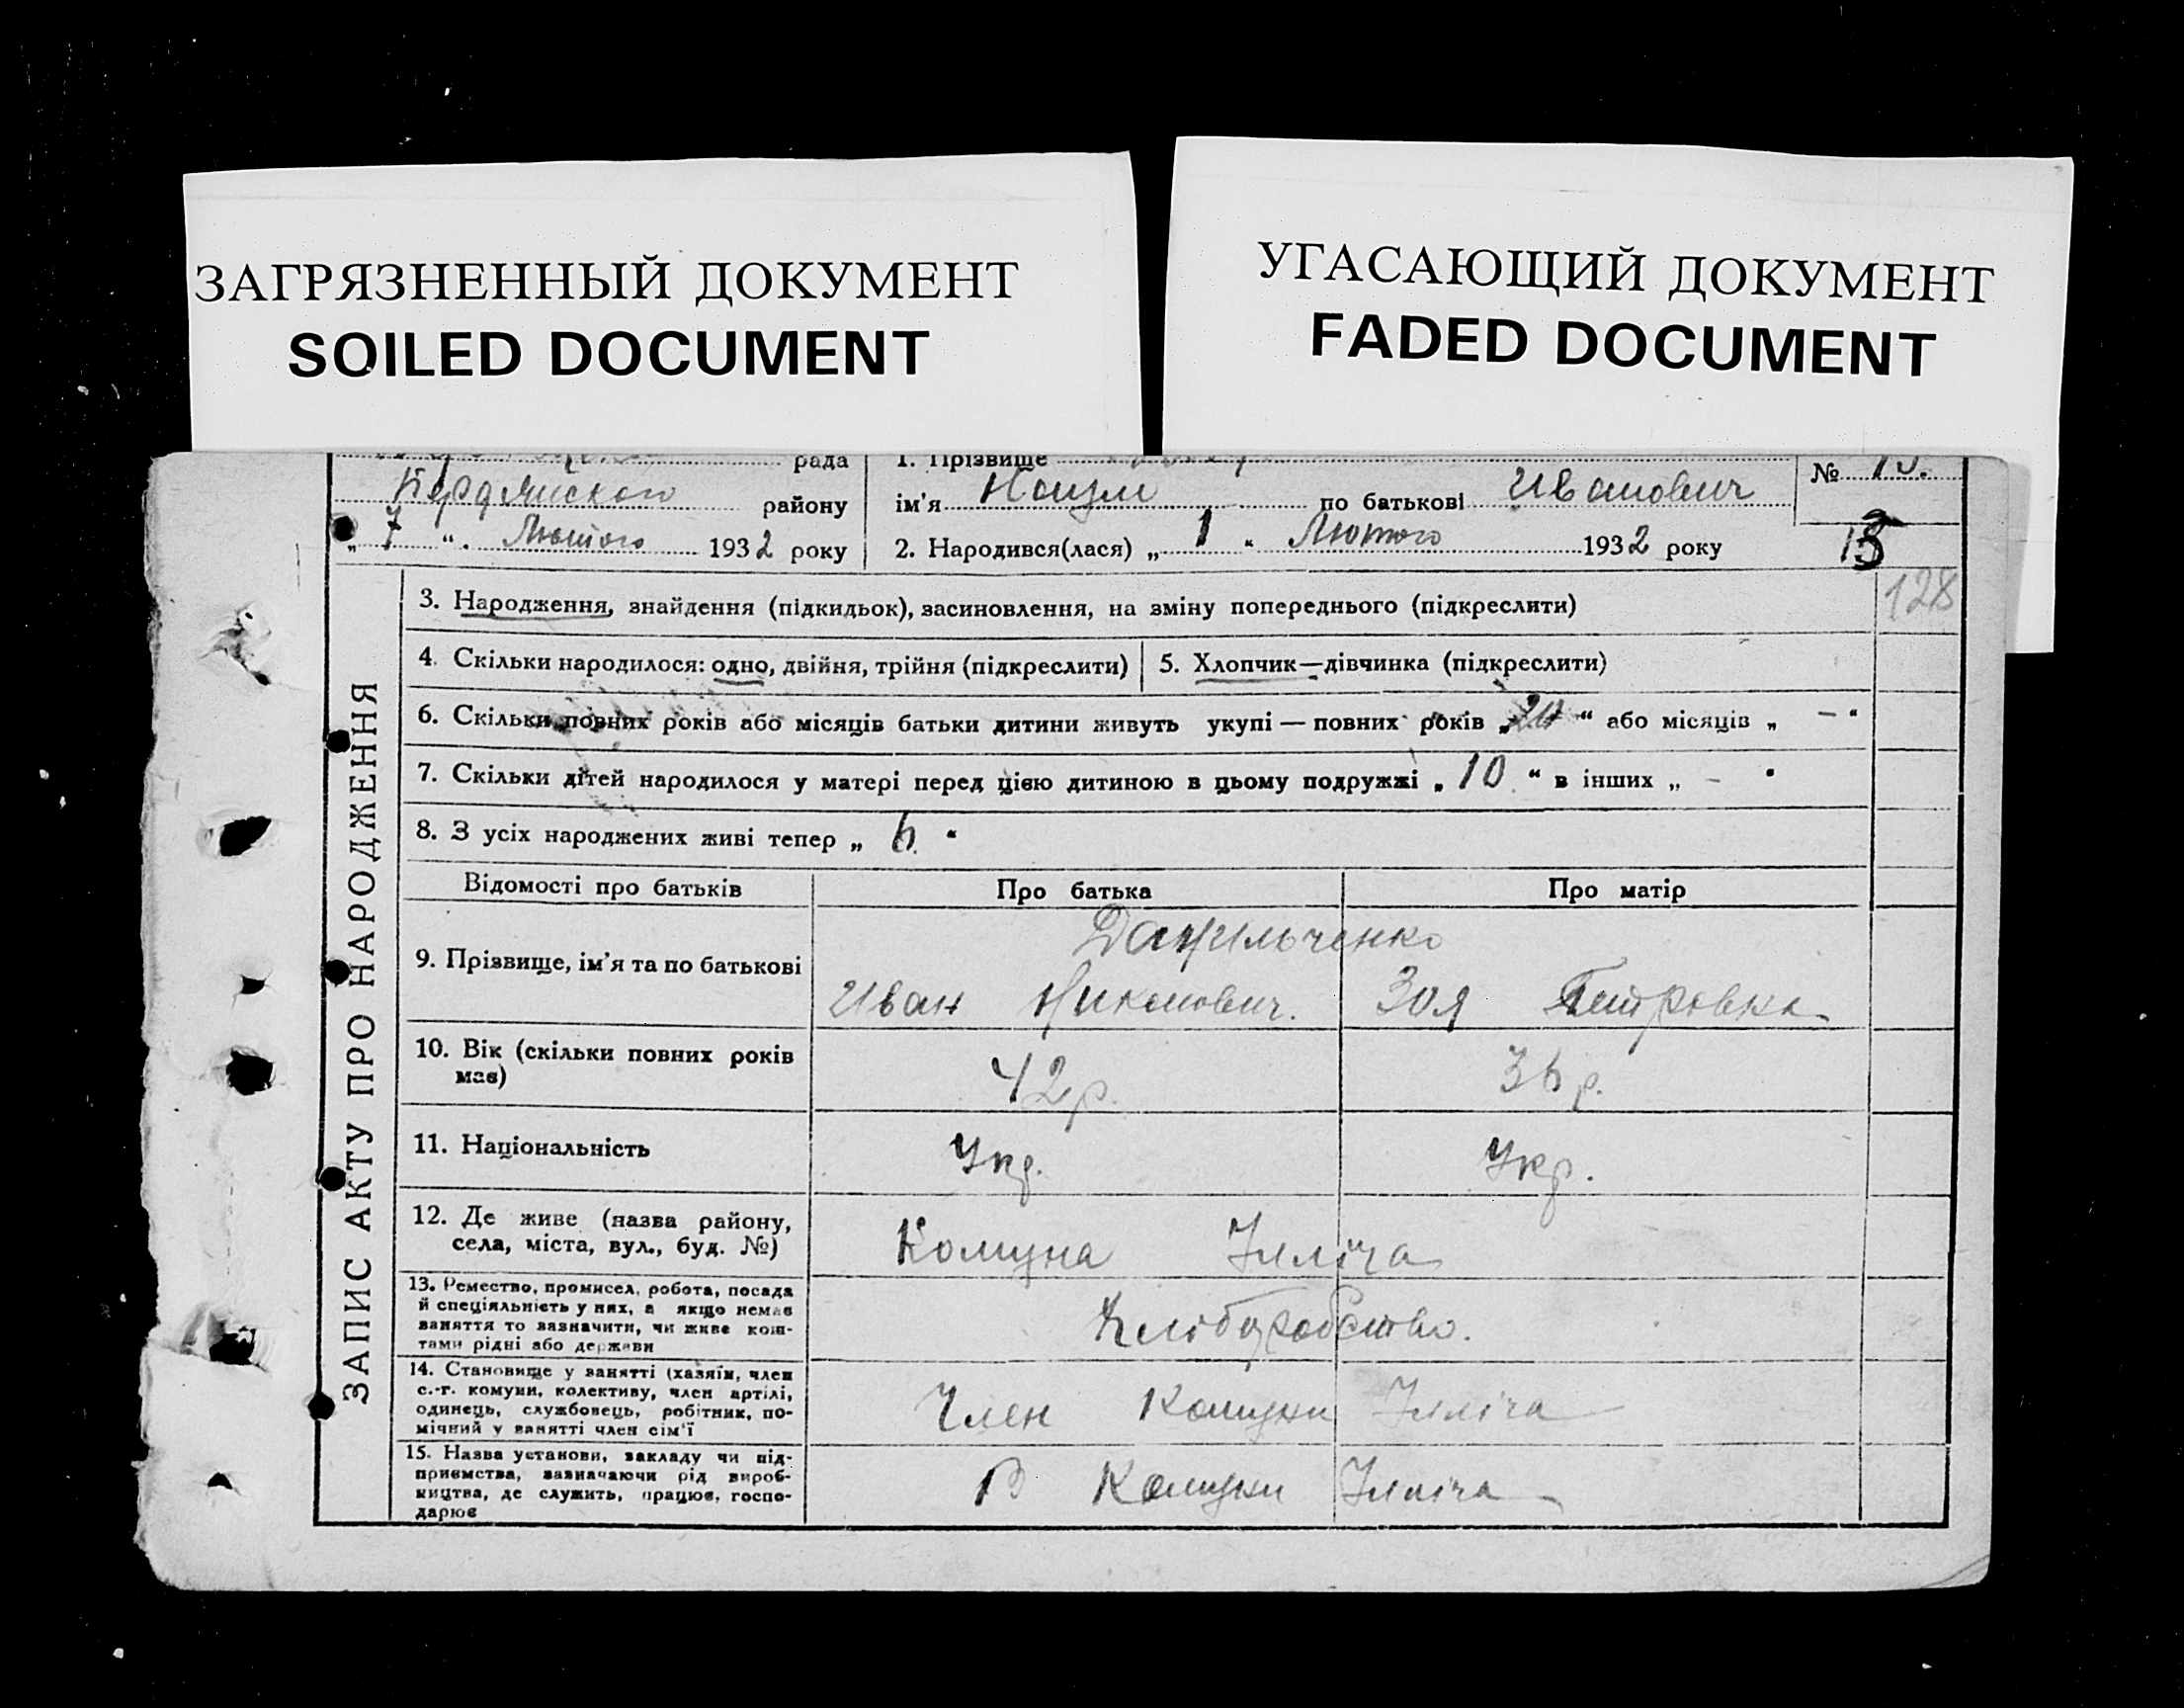 ЗАГРЯЗНЕННЫЙ ДОКУМЕНТ
SOILED DOCUMENT
УГАСАЮЩИЙ ДОКУМЕНТ
FADED DOCUMENT
рада
району
„ 7 “. Лютого 1932 року
1. Прізвище
ім'я Наум по батькові Иванович
2. Народився(лася) „ 1 “ Лютого 1932 року
№ 15.
15
128
ЗАПИС АКТУ ПРО НАРОДЖЕННЯ
3. Народження, знайдення (підкидьок), засиновлення, на зміну попереднього (підкреслити)
4. Скільки народилося: одно, двійня, трійня (підкреслити)
5. Хлопчик—дівчинка (підкреслити)
6. Скільки повних років або місяців батьки дитини живуть укупі — повних років „20“ або місяців „ — “
7. Скільки дітей народилося у матері перед цією дитиною в цьому подружжі „ 10 “ в інших „ — “
8. З усіх народжених живі тепер „ 6 “
Відомості про батьків
Про батька
Про матір
9. Прізвище, ім'я та по батькові
Данильченко
Иван Никонович.
Зоя Петровна
10. Вік (скільки повних років
має)
42 р.
36 р.
11. Національність
Укр.
Укр.
12. Де живе (назва району,
села, міста, вул., буд. №)
Комуна Ілліча
13. Ремество, промисел, робота, посада
й спеціяльність у них, а якщо немає
заняття то зазначити, чи живе кош-
тами рідні або держави
Хліборобство.
14. Становище у занятті (хазяїн, член
с.-г. комуни, колективу, член артілі,
одинець, службовець, робітник, по-
мічний у занятті член сім'ї
Член Комуни Ілліча
15. Назва установи, закладу чи під-
приємства, зазначаючи рід вироб-
ництва, де служить, працює, госпо-
дарює
В Комуни Ілліча